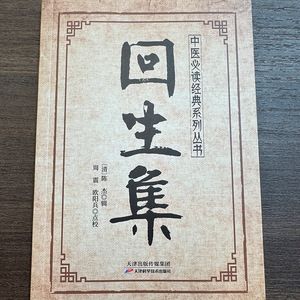 中医必读经典系列丛书
回生集
［清］陈 杰◎辑
周 雷 欧阳兵◎点校
天津出版传媒集团
天津科学技术出版社